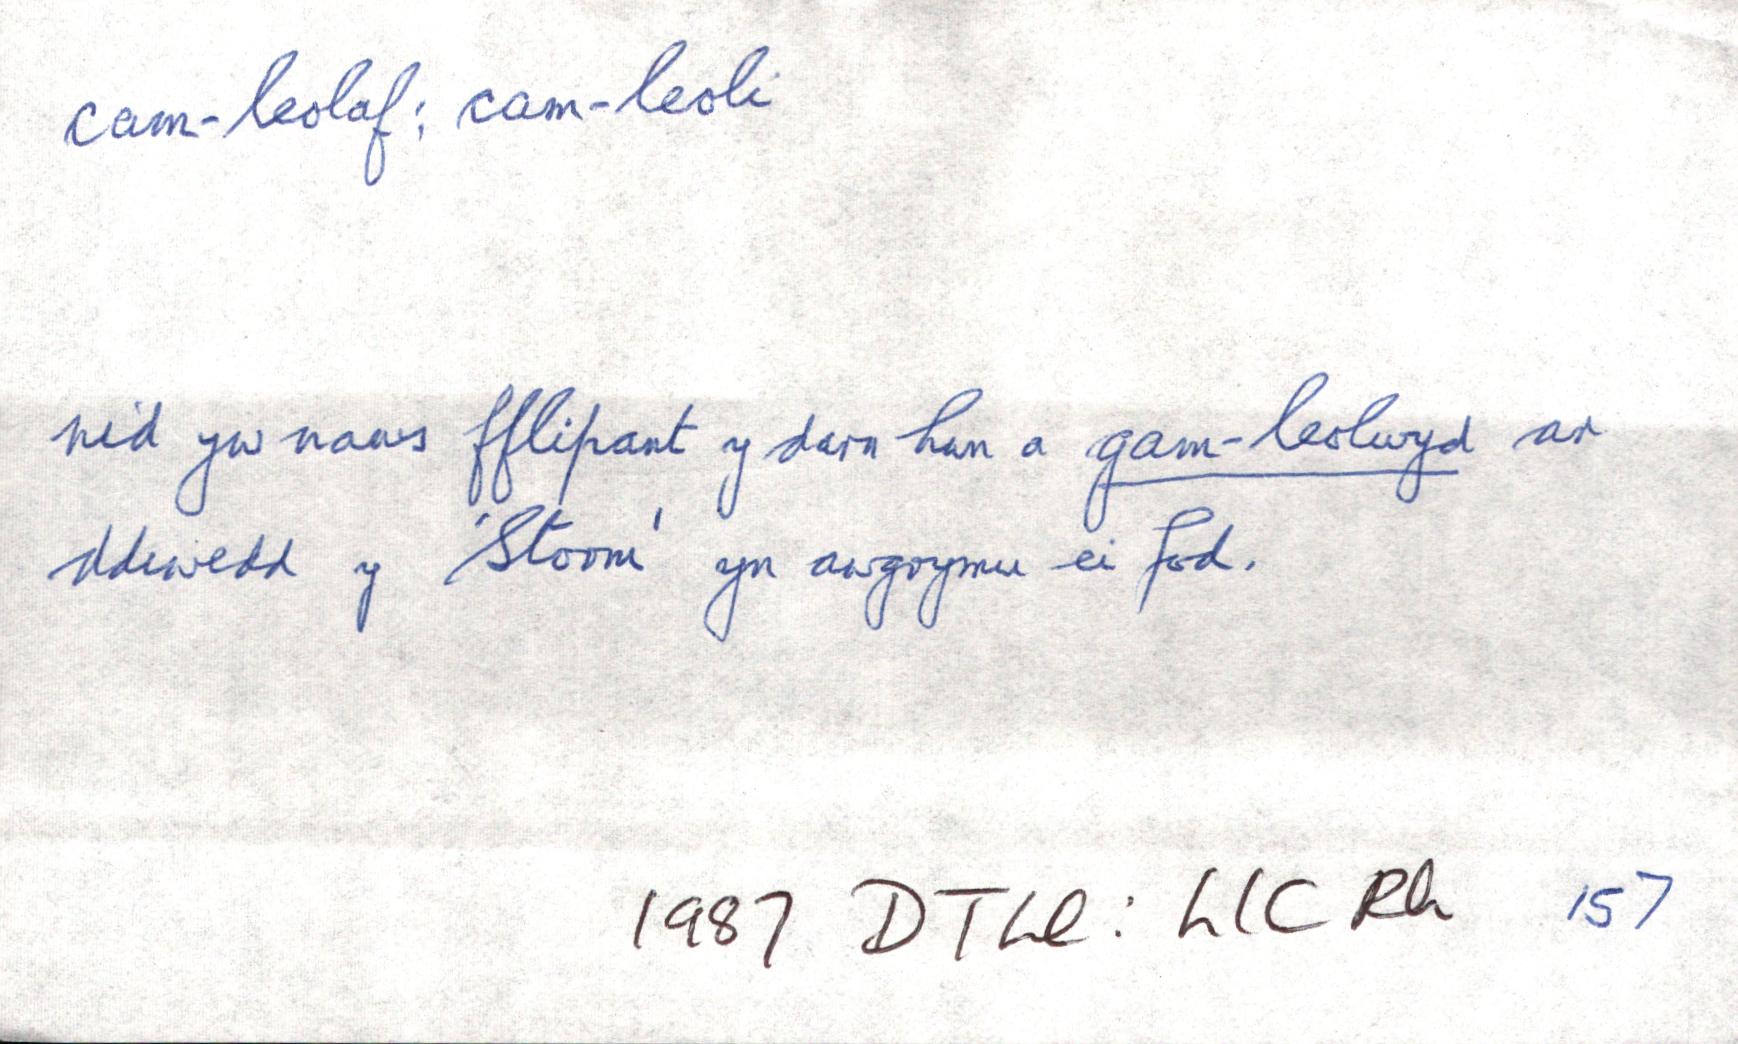 cam-leolaf: cam-leoli
nid yw naws fflipant y darn hwn a gam-leolwyd ar
ddiwedd y 'Storm' yn awgrymu ei fod.
1987 DTLl: LlC Rh 157